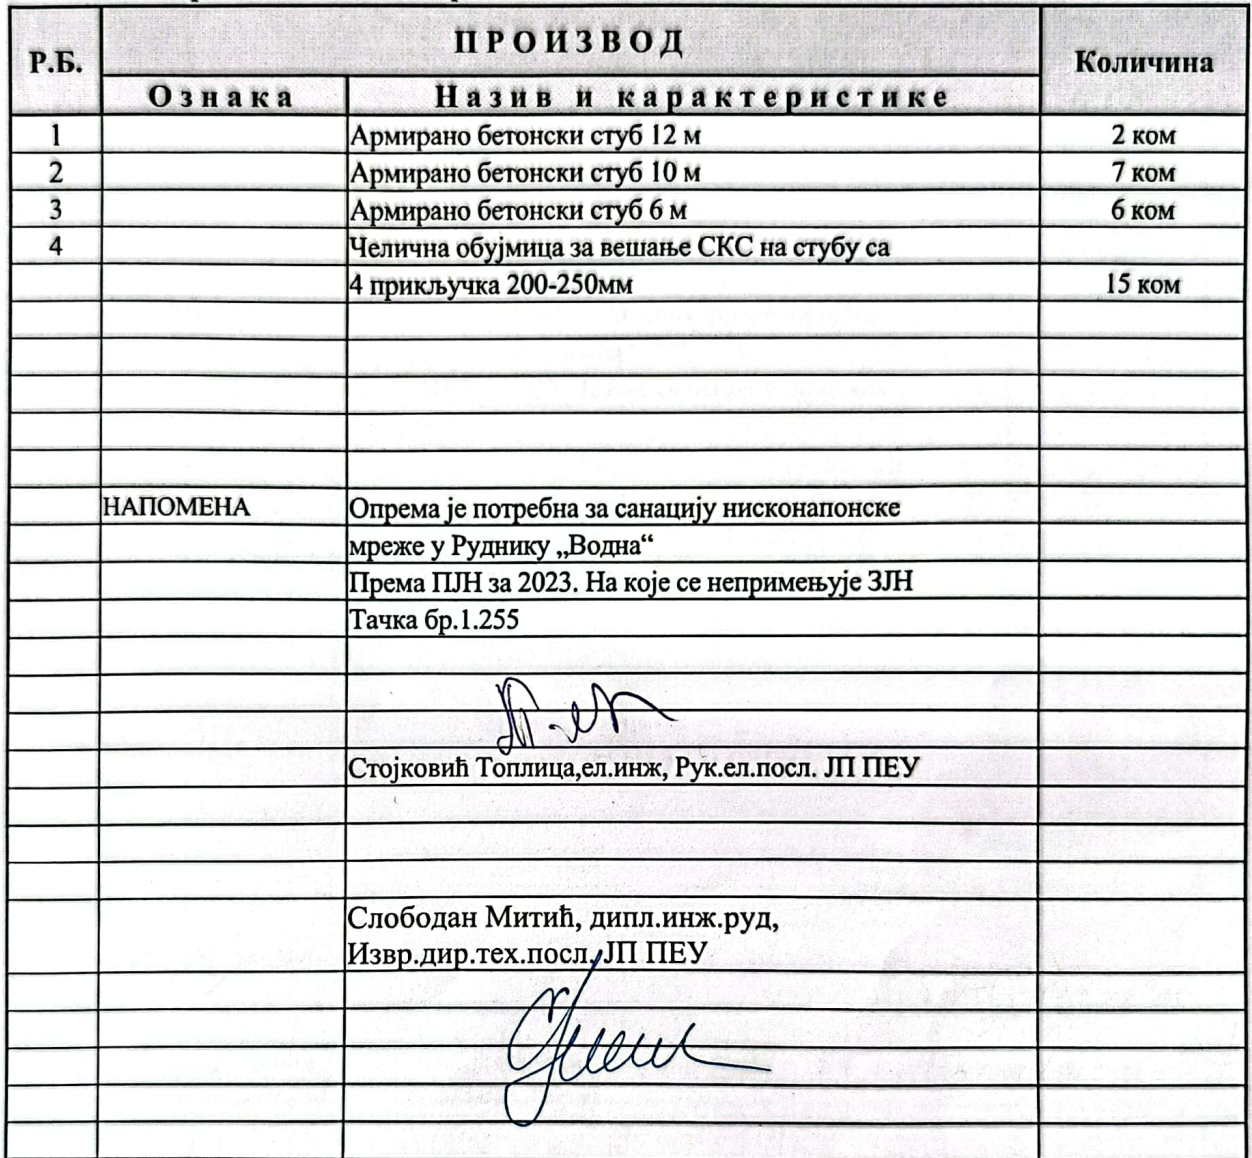 Р.Б. ПРОИЗВОД Количина
Ознака Назив и карактеристике
1 Армирано бетонски стуб 12 м 2 ком
2 Армирано бетонски стуб 10 м 7 ком
3 Армирано бетонски стуб 6 м 6 ком
4 Челична обујмица за вешање СКС на стубу са
4 прикључка 200-250мм 15 ком
НАПОМЕНА Опрема је потребна за санацију нисконапонске
мреже у Руднику „Водна“
Према ПЈН за 2023. На које се непримењује ЗЈН
Тачка бр.1.255
Стојковић Топлица,ел.инж, Рук.ел.посл. ЈП ПЕУ
Слободан Митић, дипл.инж.руд,
Извр.дир.тех.посл. ЈП ПЕУ